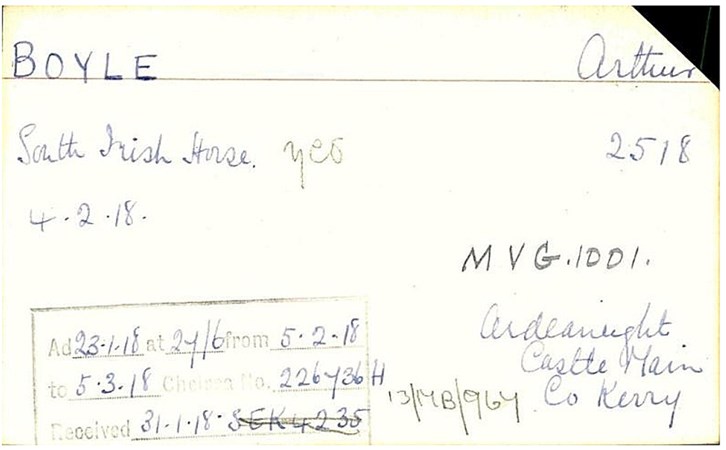 BOYLE Arthur
South Irish Horse. YEO 2518
4.2.18.
MVG.1001.
Ardeaneight
Castle Main
Co Kerry
Ad 23-1-18 at 27/6 from 5.2-18
to 5.3.18 Chelsea No. 226736 H
Received 31-1-18. SEK 4235
13/MB/967